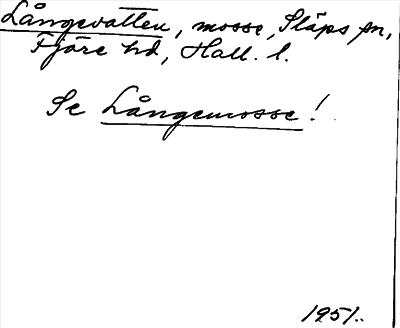 Långevatten, mosse, Släps sn,
Fjäre hd, Hall. l.
Se Långemosse!
1951.